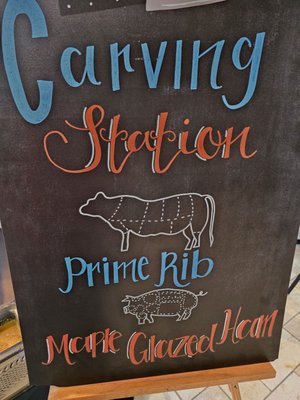 Carving
Station
Prime Rib
Maple Glazed Ham